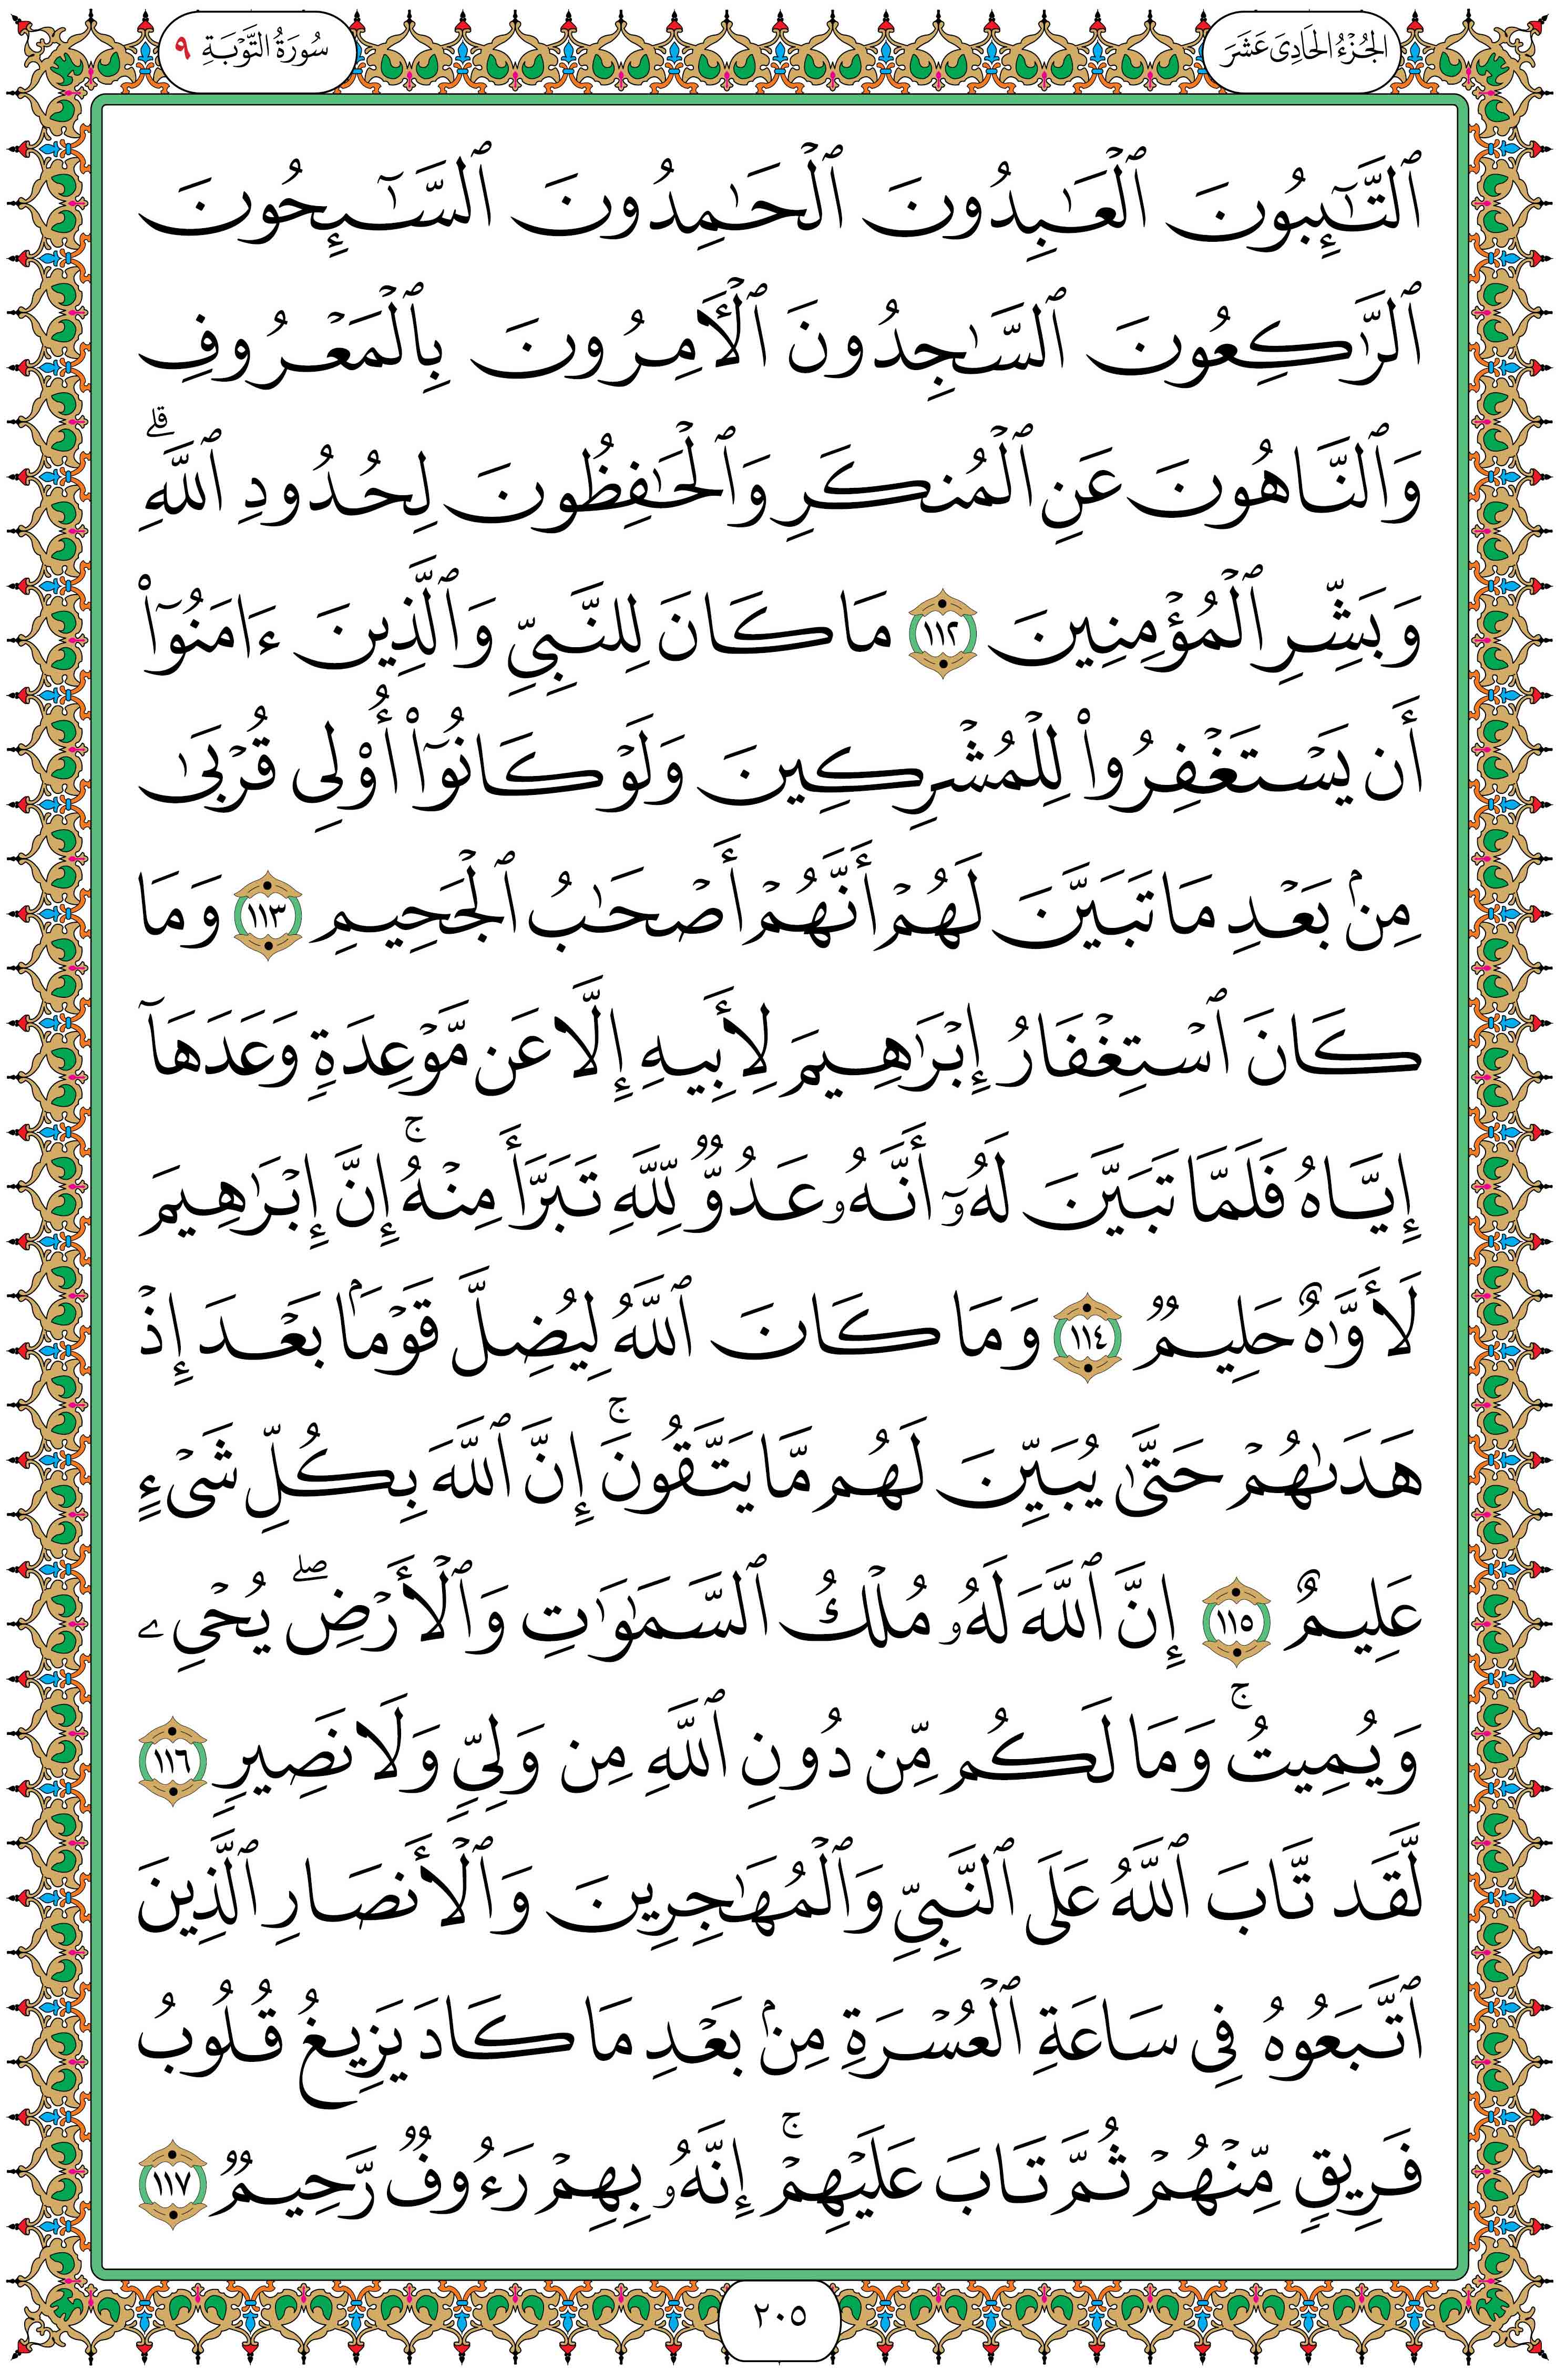 الجُزْءُ الحَادِىَ عَشَرَ
سُورَةُ التَّوْبَةِ ٩
ٱلتَّـٰٓئِبُونَ ٱلْعَـٰبِدُونَ ٱلْحَـٰمِدُونَ ٱلسَّـٰٓئِحُونَ
ٱلرَّٰكِعُونَ ٱلسَّـٰجِدُونَ ٱلْـَٔامِرُونَ بِٱلْمَعْرُوفِ
وَٱلنَّاهُونَ عَنِ ٱلْمُنكَرِ وَٱلْحَـٰفِظُونَ لِحُدُودِ ٱللَّهِ ۗ
وَبَشِّرِ ٱلْمُؤْمِنِينَ ١١٢ مَا كَانَ لِلنَّبِىِّ وَٱلَّذِينَ ءَامَنُوٓا۟
أَن يَسْتَغْفِرُوا۟ لِلْمُشْرِكِينَ وَلَوْ كَانُوٓا۟ أُو۟لِى قُرْبَىٰ
مِنۢ بَعْدِ مَا تَبَيَّنَ لَهُمْ أَنَّهُمْ أَصْحَـٰبُ ٱلْجَحِيمِ ١١٣ وَمَا
كَانَ ٱسْتِغْفَارُ إِبْرَٰهِيمَ لِأَبِيهِ إِلَّا عَن مَّوْعِدَةٍ وَعَدَهَآ
إِيَّاهُ فَلَمَّا تَبَيَّنَ لَهُۥٓ أَنَّهُۥ عَدُوٌّ لِّلَّهِ تَبَرَّأَ مِنْهُ ۚ إِنَّ إِبْرَٰهِيمَ
لَأَوَّٰهٌ حَلِيمٌ ١١٤ وَمَا كَانَ ٱللَّهُ لِيُضِلَّ قَوْمَۢا بَعْدَ إِذْ
هَدَىٰهُمْ حَتَّىٰ يُبَيِّنَ لَهُم مَّا يَتَّقُونَ ۚ إِنَّ ٱللَّهَ بِكُلِّ شَىْءٍ
عَلِيمٌ ١١٥ إِنَّ ٱللَّهَ لَهُۥ مُلْكُ ٱلسَّمَـٰوَٰتِ وَٱلْأَرْضِ ۖ يُحْىِۦ
وَيُمِيتُ ۚ وَمَا لَكُم مِّن دُونِ ٱللَّهِ مِن وَلِىٍّ وَلَا نَصِيرٍ ١١٦
لَّقَد تَّابَ ٱللَّهُ عَلَى ٱلنَّبِىِّ وَٱلْمُهَـٰجِرِينَ وَٱلْأَنصَارِ ٱلَّذِينَ
ٱتَّبَعُوهُ فِى سَاعَةِ ٱلْعُسْرَةِ مِنۢ بَعْدِ مَا كَادَ يَزِيغُ قُلُوبُ
فَرِيقٍ مِّنْهُمْ ثُمَّ تَابَ عَلَيْهِمْ ۚ إِنَّهُۥ بِهِمْ رَءُوفٌ رَّحِيمٌ ١١٧
٢٠٥